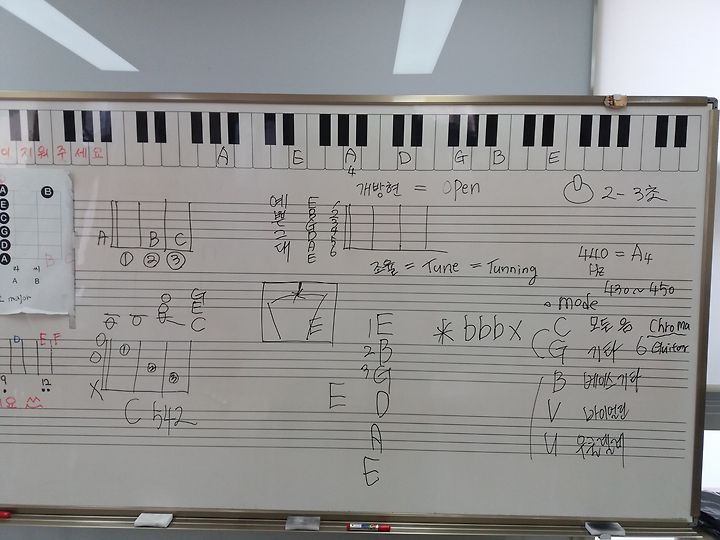 이 지워 주세요
A E A D G B E
4
개방현 = Open
2-3초
A B C
① ② ③
예 E 1
쁜 B 2
G 3
그 D 4
대 A 5
E 6
조율 = Tune = Tunning
440 = A4
Hz
430~450
mode
A B
E
C
G
D
A
major
G
E
C
E
1 E
2 B
3 G
D
A
E
E
* bbb x
C 모든 음 Chroma
G 기타 6 Guitar
B 베이스기타
V 바이올린
U 우쿨렐레
D E F
9 12
x
① ② ③
C 542